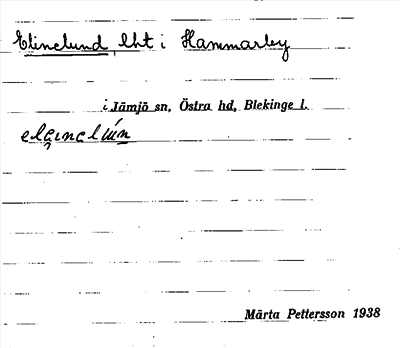 Elinelund, lht i Hammarby
i Jämjö sn, Östra hd, Blekinge l.
Märta Pettersson 1938